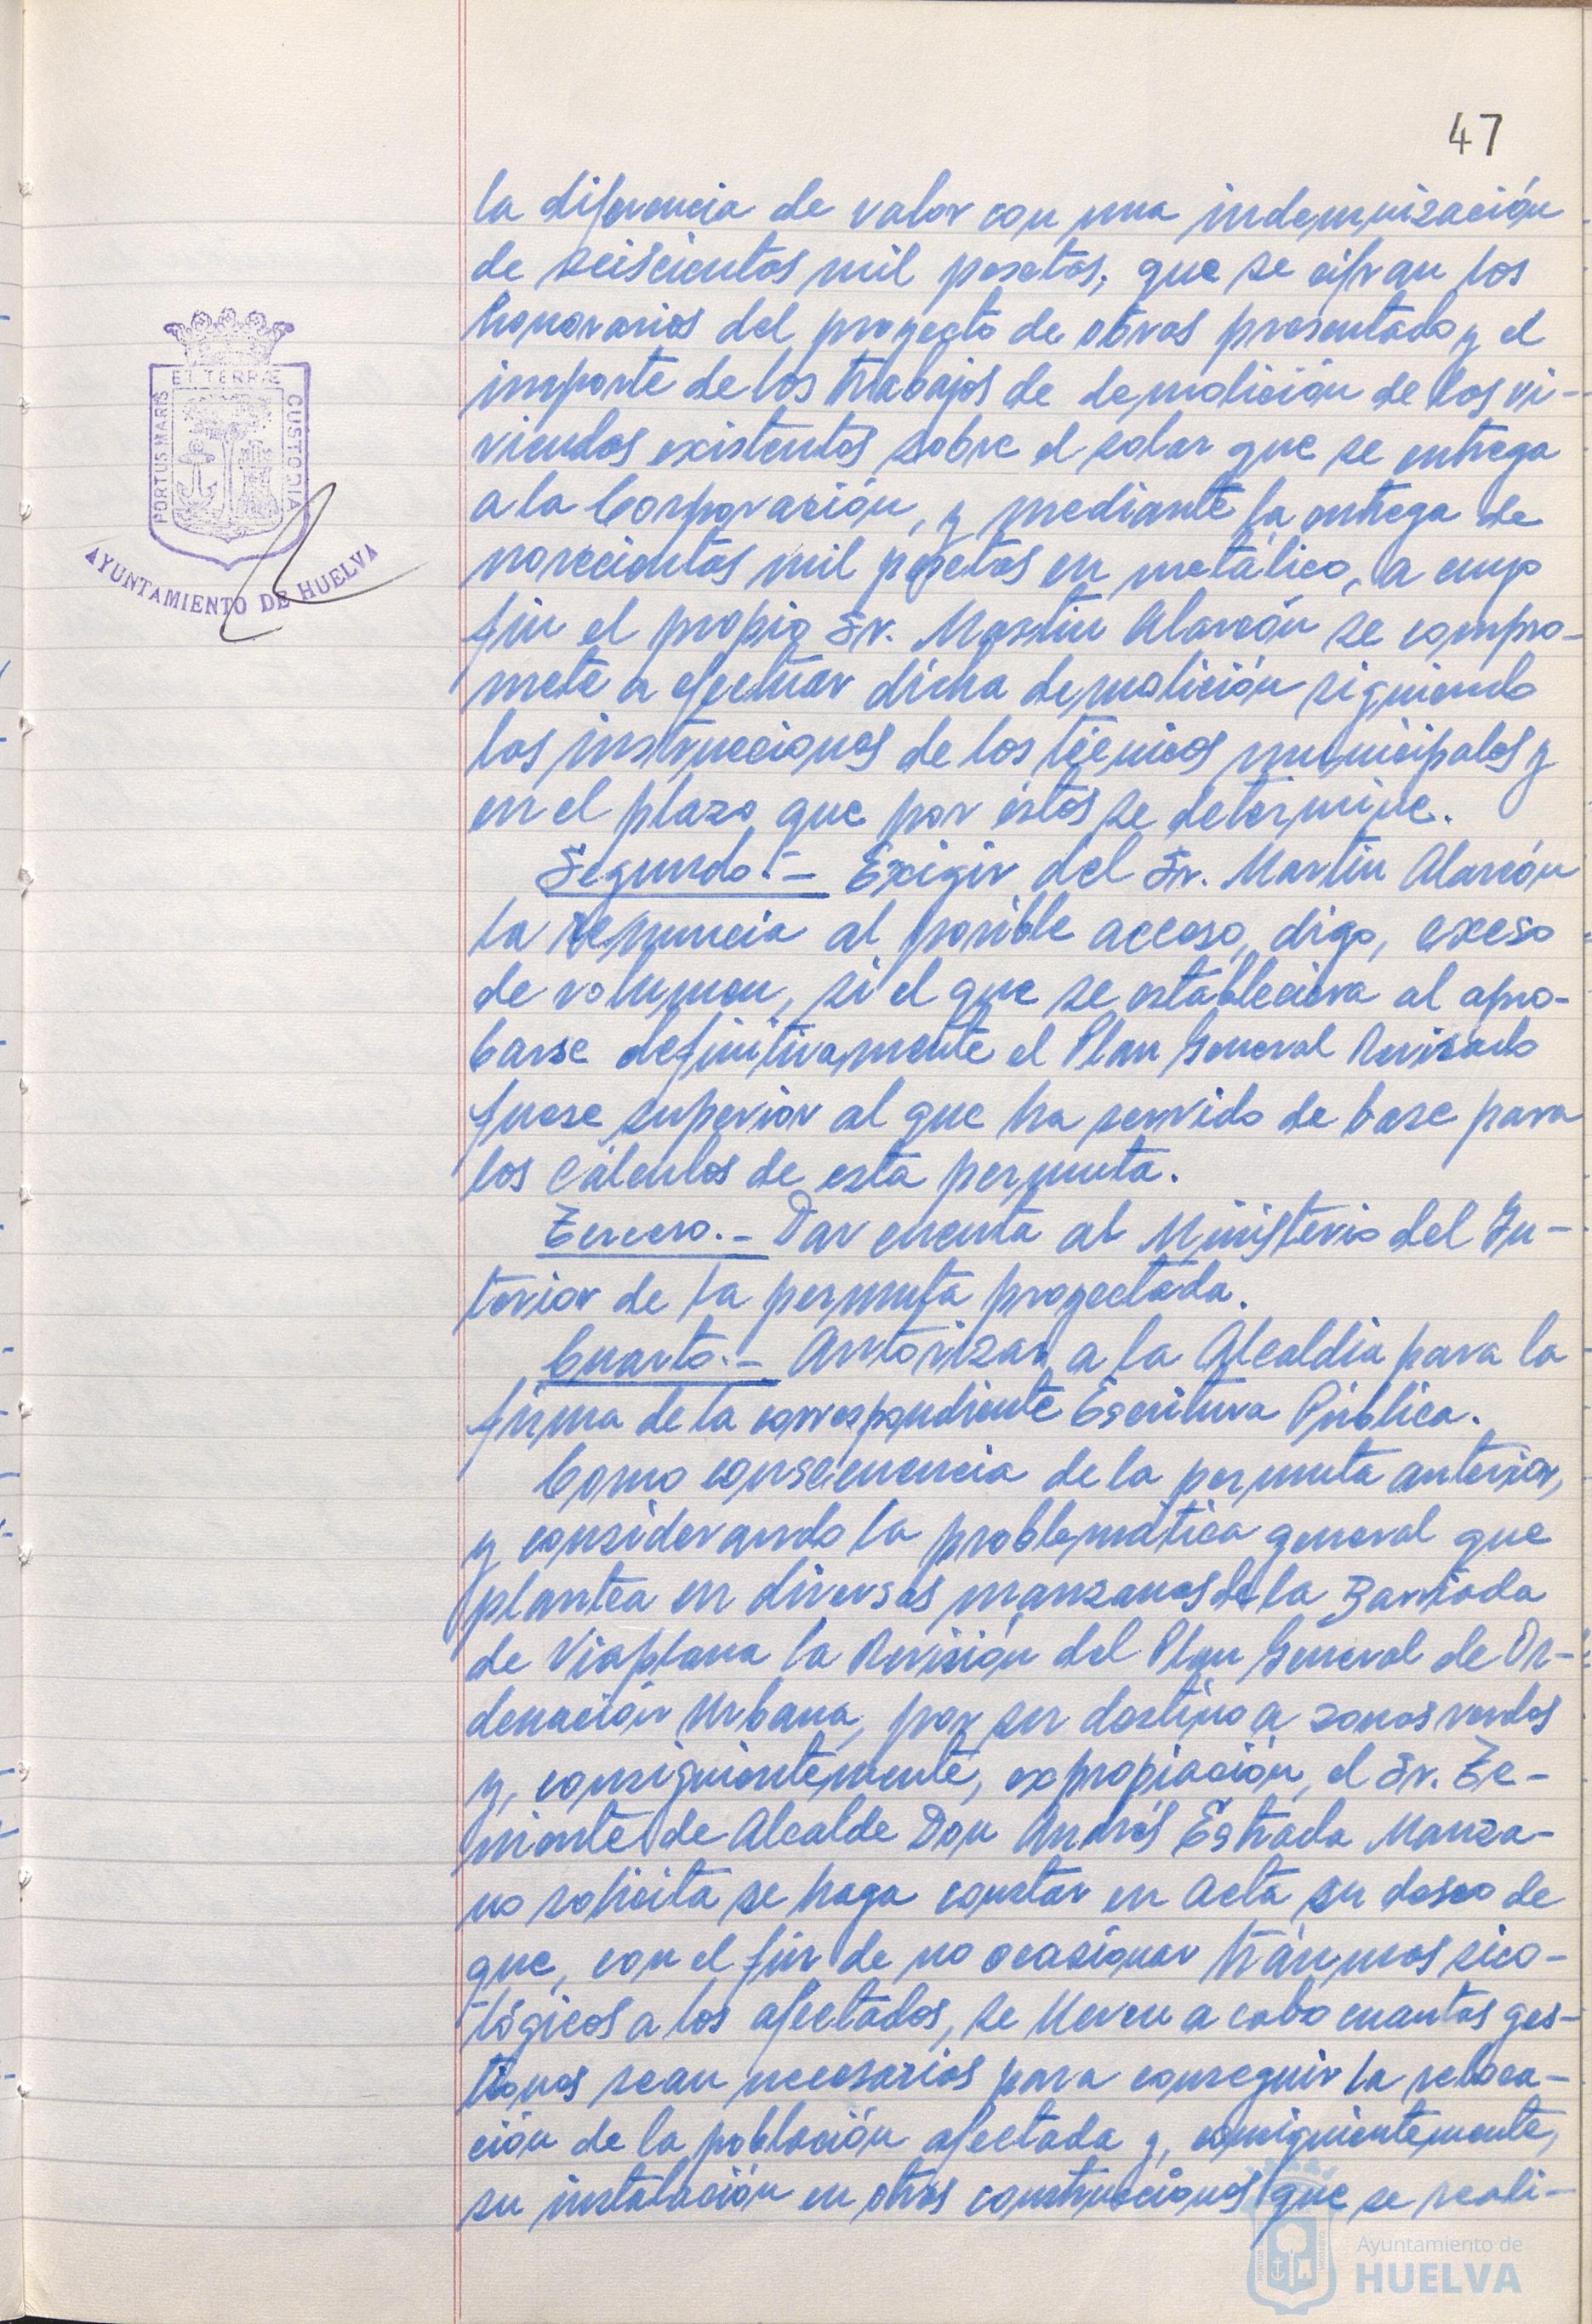 47
la diferencia de valor con una indemnización
de seiscientas mil pesetas, que se cifran los
honorarios del proyecto de obras presentado y el
importe de los trabajos de demolición de las vi-
viendas existentes sobre el solar que se entrega
a la Corporación, y mediante la entrega de
novecientas mil pesetas en metálico, a cuyo
fin el propio Sr. Martín Alarcón se compro-
mete a efectuar dicha demolición siguiendo
las instrucciones de los técnicos municipales y
en el plazo que por éstos se determine.
Segundo.- Exigir del Sr. Martín Alarcón
la renuncia al posible acceso, digo, exceso
de volumen, si el que se estableciera al apro-
barse definitivamente el Plan General Revisado
fuese superior al que ha servido de base para
los cálculos de esta permuta.
Tercero.- Dar cuenta al Ministerio del In-
terior de la permuta proyectada.
Cuarto.- Autorizar a la Alcaldía para la
firma de la correspondiente Escritura Pública.
Como consecuencia de la permuta anterior,
y considerando la problemática general que
plantea en diversas manzanas de la Barriada
de Viaplana la Revisión del Plan General de Or-
denación Urbana, por su destino a zonas verdes
y, consiguientemente, expropiación, el Sr. Te-
niente de Alcalde Don Andrés Estrada Manza-
no solicita se haga constar en Acta su deseo de
que, con el fin de no ocasionar traumas sico-
lógicos a los afectados, se lleven a cabo cuantas ges-
tiones sean necesarias para conseguir la reloca-
ción de la población afectada y, consiguientemente,
su instalación en otras construcciones que se reali-
ET TERRÆ
PORTUS MARIS
CUSTODIA
AYUNTAMIENTO DE HUELVA
Ayuntamiento de
HUELVA